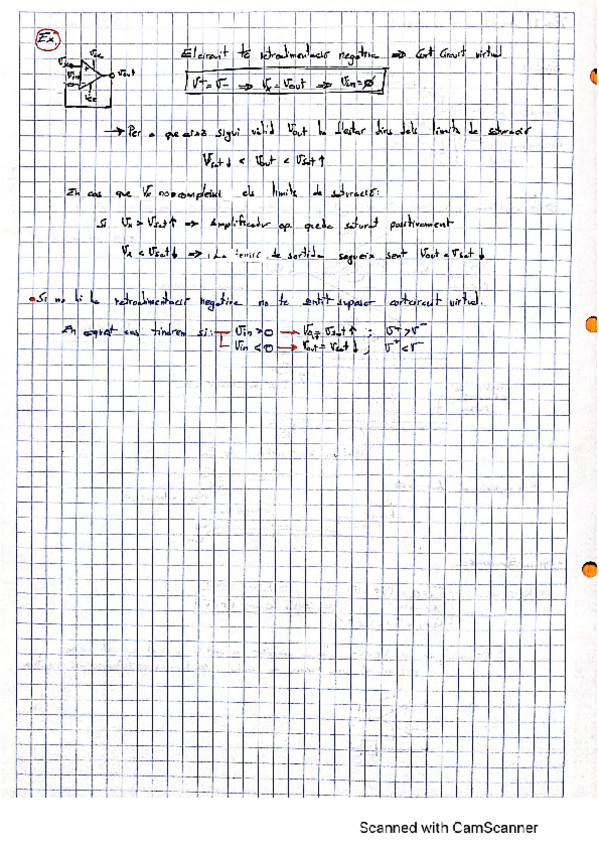 Ex
Vcc
Vx
Vin
Vout
VEE
El circuit té retroalimentació negativa => Curt Circuit virtual
V+ = V- => Vx = Vout => Vin = 0
→ Per a que això sigui vàlid Vout ha d'estar dins dels límits de saturació
Vsat↓ < Vout < Vsat↑
En cas que Vx no compleixi els límits de saturació:
Si Vx > Vsat↑ => Amplificador op. queda saturat positivament
Vx < Vsat↓ => La tensió de sortida segueix sent Vout = Vsat↓
• Si no hi ha retroalimentació negativa no té sentit suposar curtcircuit virtual.
En aquest cas tindrem si: Vin > 0 → Vout = Vsat↑ ; V+ > V-
Vin < 0 → Vout = Vsat↓ ; V+ < V-
Scanned with CamScanner